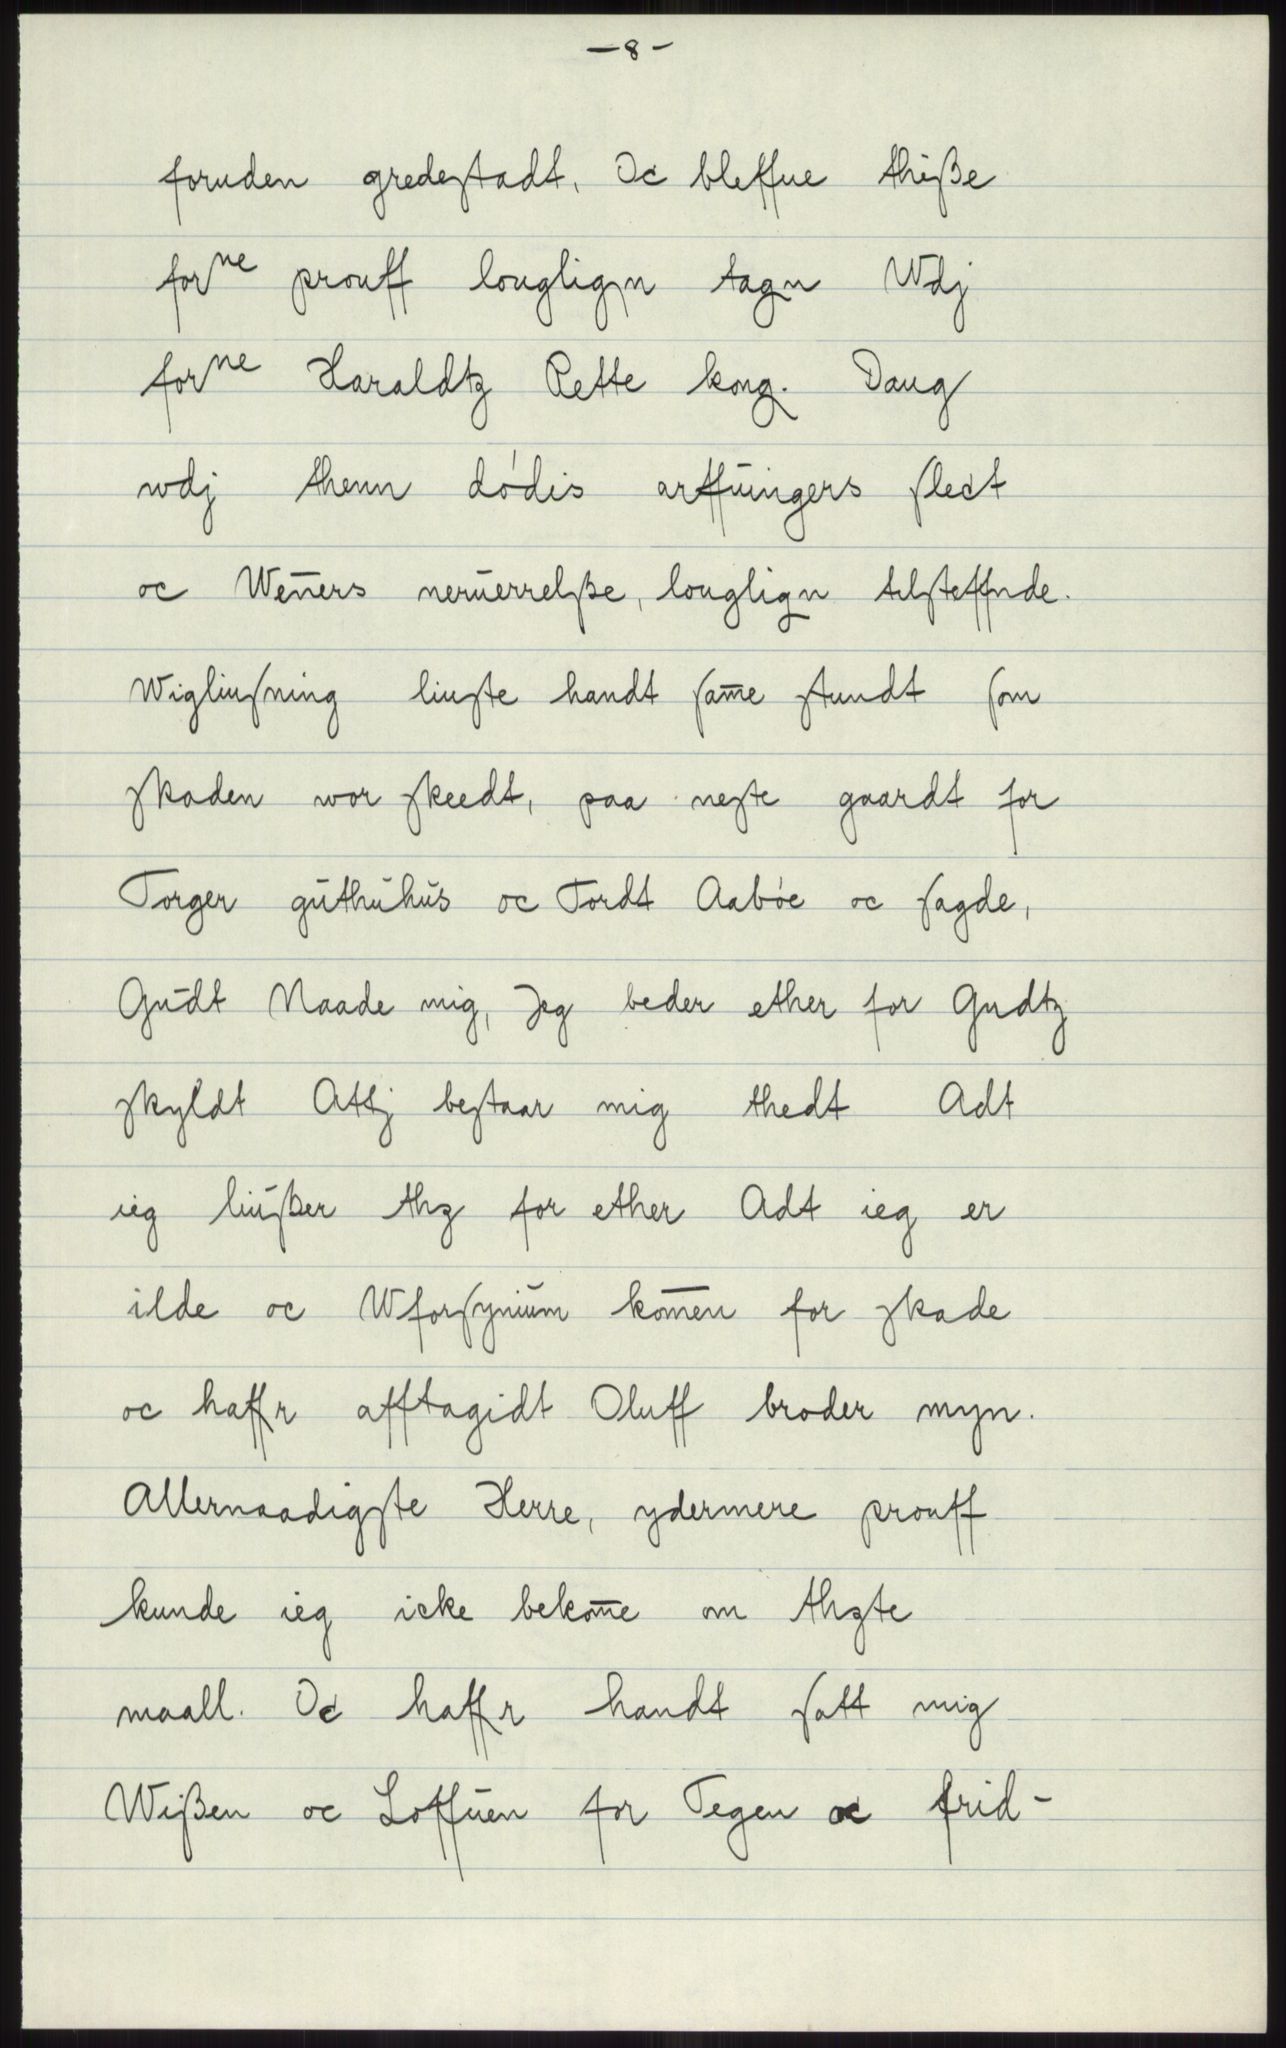 — 8 —
foruden gredestadt. Oc bleffue thiße
forne prouff louglign tagn Wdj
forne Haraldtz Rette kong. Daug
wdj thenn dødis arffuingers slect
oc Weners neruerrelße, louglign tilsteffnde.
Wigliusning liuste handt same stundt som
skaden wor skeedt, paa neste gaardt for
Torger guthuhus oc Tordt Aabøe oc sagde,
Gudt Naade mig, Jeg beder ether for Gudtz
skyldt Attj bestaar mig thedt Adt
ieg liußer thz for ether Adt ieg er
ilde oc Wforsynium komen for skade
oc haffr afftagidt Oluff broder myn.
Allernaadigste Herre, ydermere prouff
kunde ieg icke bekome om thzte
maall. Oc haffr handt satt mig
Wißen oc Loffuen for Tegen oc frid-